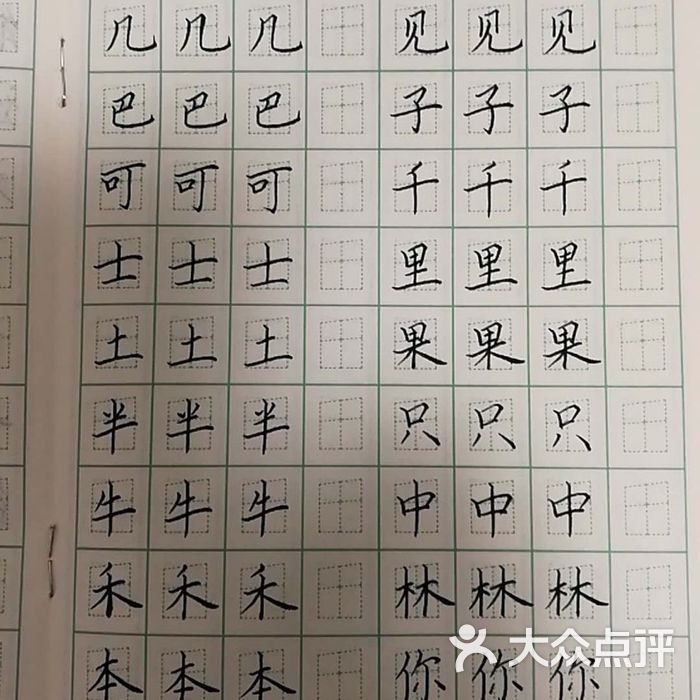 几 几 几 见 见 见
巴 巴 巴 子 子 子
可 可 可 千 千 千
士 士 士 里 里 里
土 土 土 果 果 果
半 半 半 只 只 只
牛 牛 牛 中 中 中
禾 禾 禾 林 林 林
本 本 本 你 你 你
大众点评